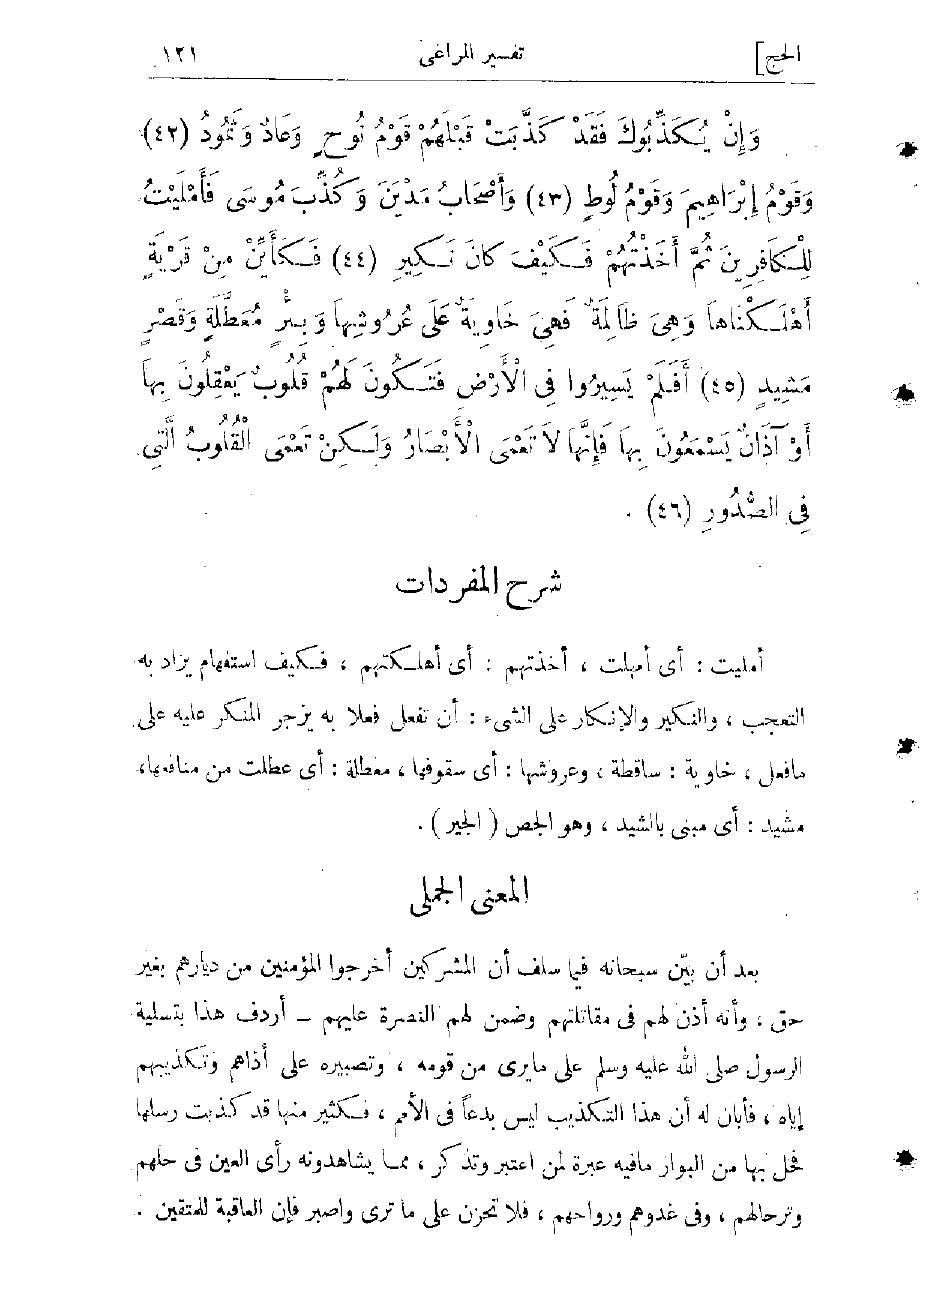 الحج] تفسير المراغى ١٢١
وَإِنْ يُكَذِّبُوكَ فَقَدْ كَذَّبَتْ قَبْلَهُمْ قَوْمُ نُوحٍ وَعَادٌ وَثَمُودُ (٤٢)
وَقَوْمُ إِبْرَاهِيمَ وَقَوْمُ لُوطٍ (٤٣) وَأَصْحَابُ مَدْيَنَ وَكُذِّبَ مُوسَى فَأَمْلَيْتُ
لِلْكَافِرِينَ ثُمَّ أَخَذْتُهُمْ فَكَيْفَ كانَ نَكِيرِ (٤٤) فَكَأَيِّنْ مِنْ قَرْيَةٍ
أَهْلَكْنَاها وَهِىَ ظالِمَةٌ فَهِىَ خَاوِيَةٌ عَلَى عُرُوشِها وَبِئْرٍ مُعَطَّلَةٍ وَقَصْرٍ
مَشِيدٍ (٤٥) أَفَلَمْ يَسِيرُوا فِى الْأَرْضِ فَتَكُونَ لَهُمْ قُلُوبٌ يَعْقِلُونَ بِها
أَوْ آذَانٌ يَسْمَعُونَ بِهَا فَإِنَّها لَا تَعْمَى الْأَبْصَارُ وَلَكِنْ تَعْمَى الْقُلُوبُ الَّتِي
فِى الصُّدُورِ (٤٦) .
شرح المفردات
أمليت : أى أمهلت ، أخذتهم : أى أهلكتهم ، فكيف استفهام يراد به
التعجب ، والنكير والإنكار على الشىء : أن تفعل فعلا به يزجر المنكر عليه على
مافعل ، خاوية : ساقطة ، وعروشها : أى سقوفها ، معطلة : أى عطلت من منافعها،
مشيد : أى مبنى بالشيد ، وهو الجص ( الجير ) .
المعنى الجملى
بعد أن بيّن سبحانه فيما سلف أن المشركين أخرجوا المؤمنين من ديارهم بغير
حق ، وأنه أذن لهم فى مقاتلتهم وضمن لهم النصرة عليهم – أردف هذا بتسلية
الرسول صلى الله عليه وسلم على مايرى من قومه ، وتصبيره على أذاهم وتكذيبهم
إياه ، فأبان له أن هذا التكذيب ليس بدعاً فى الأمم ، فكثير منها قد كذبت رسلها
فحل بها من البوار مافيه عبرة لمن اعتبر وتذكر ، مما يشاهدونه رأى العين فى حلهم
وترحالهم ، وفى غدوهم ورواحهم ، فلا تحزن على ما ترى واصبر فإن العاقبة للمتقين .